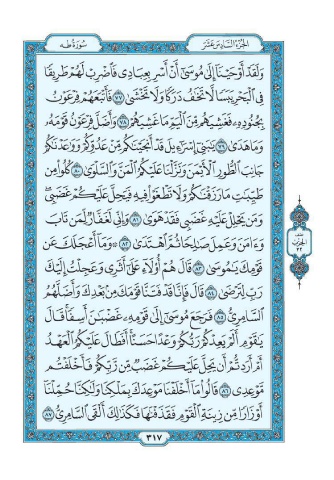 الجزء السادس عشر
سورة طه
وَلَقَدْ أَوْحَيْنَا إِلَىٰ مُوسَىٰ أَنْ أَسْرِ بِعِبَادِى فَٱضْرِبْ لَهُمْ طَرِيقًا
فِى ٱلْبَحْرِ يَبَسًا لَّا تَخَٰفُ دَرَكًا وَلَا تَخْشَىٰ ٧٧ فَأَتْبَعَهُمْ فِرْعَوْنُ
بِجُنُودِهِۦ فَغَشِيَهُم مِّنَ ٱلْيَمِّ مَا غَشِيَهُمْ ٧٨ وَأَضَلَّ فِرْعَوْنُ قَوْمَهُۥ
وَمَا هَدَىٰ ٧٩ يَٰبَنِىٓ إِسْرَٰٓءِيلَ قَدْ أَنجَيْنَٰكُم مِّنْ عَدُوِّكُمْ وَوَٰعَدْنَٰكُمْ
جَانِبَ ٱلطُّورِ ٱلْأَيْمَنَ وَنَزَّلْنَا عَلَيْكُمُ ٱلْمَنَّ وَٱلسَّلْوَىٰ ٨٠ كُلُوا۟ مِن
طَيِّبَٰتِ مَا رَزَقْنَٰكُمْ وَلَا تَطْغَوْا۟ فِيهِ فَيَحِلَّ عَلَيْكُمْ غَضَبِى ۖ
وَمَن يَحْلِلْ عَلَيْهِ غَضَبِى فَقَدْ هَوَىٰ ٨١ وَإِنِّى لَغَفَّارٌ لِّمَن تَابَ
وَءَامَنَ وَعَمِلَ صَٰلِحًا ثُمَّ ٱهْتَدَىٰ ٨٢ ۞ وَمَآ أَعْجَلَكَ عَن
قَوْمِكَ يَٰمُوسَىٰ ٨٣ قَالَ هُمْ أُو۟لَآءِ عَلَىٰٓ أَثَرِى وَعَجِلْتُ إِلَيْكَ
رَبِّ لِتَرْضَىٰ ٨٤ قَالَ فَإِنَّا قَدْ فَتَنَّا قَوْمَكَ مِنۢ بَعْدِكَ وَأَضَلَّهُمُ
ٱلسَّامِرِىُّ ٨٥ فَرَجَعَ مُوسَىٰٓ إِلَىٰ قَوْمِهِۦ غَضْبَٰنَ أَسِفًا ۚ قَالَ
يَٰقَوْمِ أَلَمْ يَعِدْكُمْ رَبُّكُمْ وَعْدًا حَسَنًا ۚ أَفَطَالَ عَلَيْكُمُ ٱلْعَهْدُ
أَمْ أَرَدتُّمْ أَن يَحِلَّ عَلَيْكُمْ غَضَبٌ مِّن رَّبِّكُمْ فَأَخْلَفْتُم
مَّوْعِدِى ٨٦ قَالُوا۟ مَآ أَخْلَفْنَا مَوْعِدَكَ بِمَلْكِنَا وَلَٰكِنَّا حُمِّلْنَآ
أَوْزَارًا مِّن زِينَةِ ٱلْقَوْمِ فَقَذَفْنَٰهَا فَكَذَٰلِكَ أَلْقَى ٱلسَّامِرِىُّ ٨٧
٣١٧
نصف
الحزب
٣٢